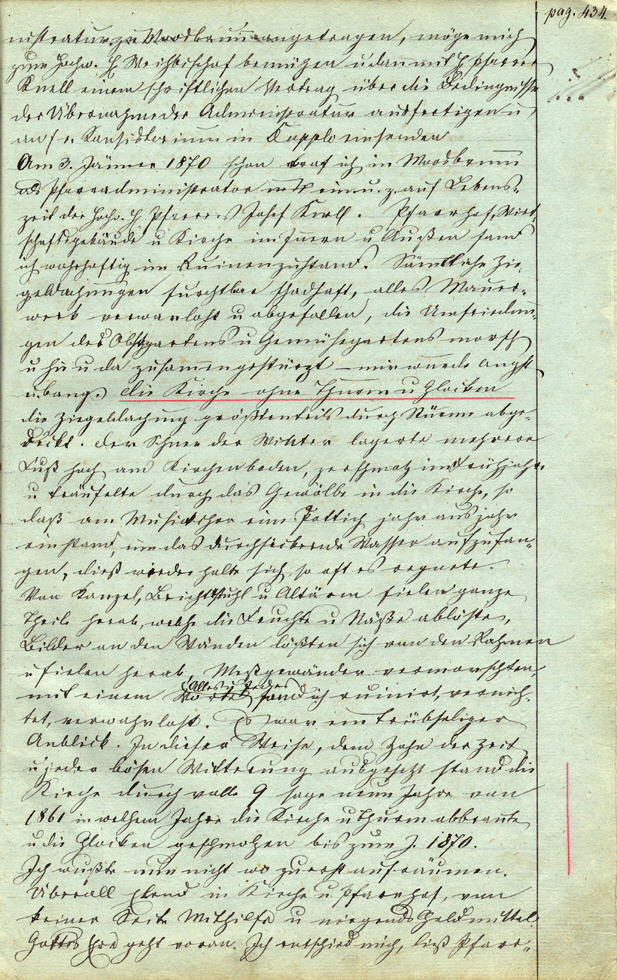 pag. 434.
nistratur zu Moodbrunn angetragen, möge mich
zum Hochw. H Weihbischof benützen u dann mit H Pfarrer
Knoll einen schriftlichen Vertrag über die Bedingnisse
der Übernahme der Administratur ausfertigen u
an f. e. Konsistorium in Vorlage senden
Am 3. Jänner 1870 schon traf ich in Moodbrunn
als Pfarradministrator ein u. z. auf Lebens-
zeit des Hochw. H Pfarrers Josef Knoll. Pfarrhof, Wirt-
schaftsgebäude u Kirche im Innern u Außen fand
ich wahrhaftig im Ruinenzustand. Sämtliche Zie-
geldachungen furchtbar schadhaft, alles Mauer-
werk verwarlost u abgefallen, die Umfriedun-
gen des Obstgartens u Gemüsegartens morsch
u hie u da zusammengestürzt – mir wurde angst
u bang. Die Kirche ohne Thurm u Glocken
die Ziegeldachung größtenteils durch Stürme abge-
deckt. Der Schnee des Winter lagerte mehrere
Fuß hoch am Kirchenboden, zerschmolz im Frühjahr
u träufelte durch das Gewölbe in die Kirche, so
daß am Musikchor ein Pottich jahraus jahr
ein stand, um das durchsickernde Wasser aufzufan-
gen, dieß wiederholte sich so oft es regnete.
Von Kanzel, Beichtstuhl u Altären fielen ganze
Theile herab, welche die Feuchte u Näße ablöste,
Bilder an den Wänden lößten sich von den Rahmen
u fielen herab, Meßgewänder vermorschten,
mit einem Worte Alles u Jedes fand ich ruinirt, vernich-
tet, verwahrlost. Es war ein trübseliger
Anblick. In dieser Weise, dem Zahn der Zeit
u jeder bösen Witterung ausgesetzt stand die
Kirche durch volle 9 sage neun Jahre von
1861 in welchem Jahre die Kirche u Thurm abbrannte
u die Glocken geschmolzen bis zum J. 1870.
Ich wußte nun nicht wo zuerst aufräumen.
Überall Elend in Kirche u Pfarrhof, von
keiner Seite Mithilfe u nirgends Geldmittel.
Gottes Ehre geht voran. Ich entschied mich, ließ Pfarr-